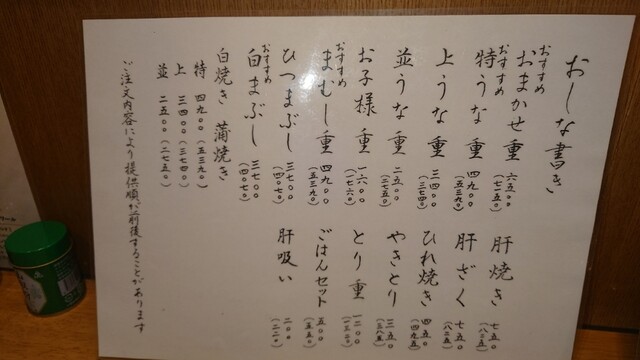 おしな書き
おすすめ
おまかせ重 六五〇〇 (七一五〇)
おすすめ
特うな重 四九〇〇 (五三九〇)
上うな重 三四〇〇 (三七四〇)
並うな重 二五〇〇 (二七五〇)
お子様重 一六〇〇 (一七六〇)
おすすめ
まむし重 四九〇〇 (五三九〇)
ひつまぶし 三七〇〇 (四〇七〇)
おすすめ
白まぶし 三七〇〇 (四〇七〇)
肝焼き 七五〇 (八二五)
肝ざく 七五〇 (八二五)
ひれ焼き 四五〇 (四九五)
やきとり 三五〇 (三八五)
とり重 一二〇〇 (一三二〇)
ごはんセット 五〇〇 (五五〇)
肝吸い 二〇〇 (二二〇)
白焼き 蒲焼き
特 四九〇〇 (五三九〇)
上 三四〇〇 (三七四〇)
並 二五〇〇 (二七五〇)
ご注文内容により提供順が前後することがあります